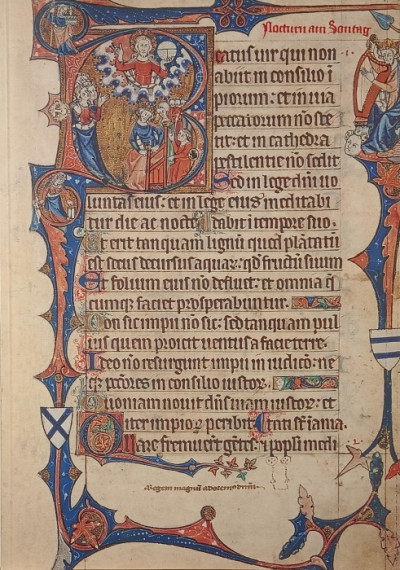 Nocturn am Sontag
Beatus uir qui non .1.
abiit in consilio ī
piorum: et in uia
peccatorum nō ste
tit: et in cathedra
pestilentie nō sedit
Sed in lege dn̄i uo
luntas eius: et in lege eius meditabi
tur die ac nocte dabit in tempore suo.
Et erit tanquam lignū quod plātatū
est secus decursus aquar: qd̄ fructū suum
Et folium eius nō defluet: et omnia q
cumq; faciet prosperabuntur.
Non sic impii nō sic: sed tanquam pul
uis quem proicit uentus a facie terre.
Ideo nō resurgunt impii in iudicio: ne
q; pctores in consilio iustor.
Quoniam nouit dn̄s uiam iustor: et
iter impior peribit
Quare fremuerūt gētes: et popli medi
.2.
Regem magnū adoremus dn̄m